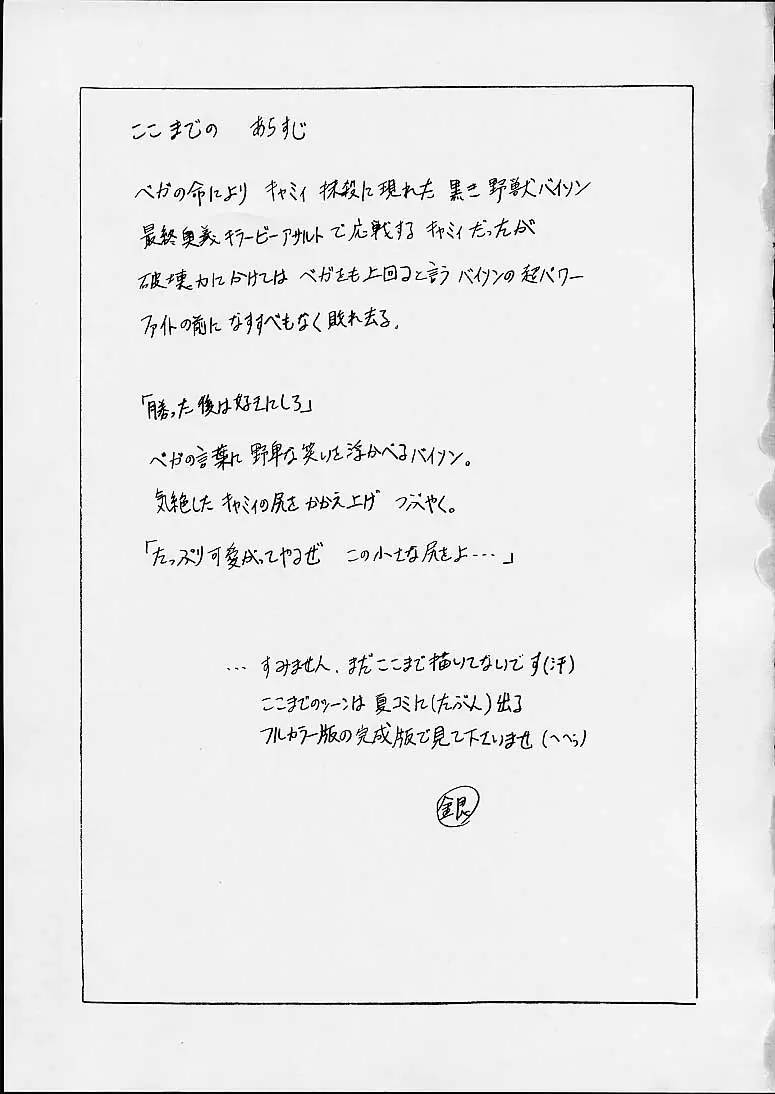 ここまでの あらすじ
ベガの命により キャミィ 抹殺に現れた 黒き 野獣バイソン
最終奥義キラービーアサルトで応戦する キャミィだったが
破壊力にかけては ベガをも上回ると言う バイソンの超パワー
ファイトの前に なすすべもなく敗れ去る。
「勝った後は好きにしろ」
ベガの言葉に 野卑な笑いを浮かべるバイソン。
気絶した キャミィの尻をかかえ上げ つぶやく。
「たっぷり可愛がってやるぜ この小さな尻をよ…」
… すみません、まだここまで描いてないです(汗)
ここまでのシーンは 夏コミに(たぶん)出る
フルカラー版の完成版で見て下さいませ(へへっ)
銀